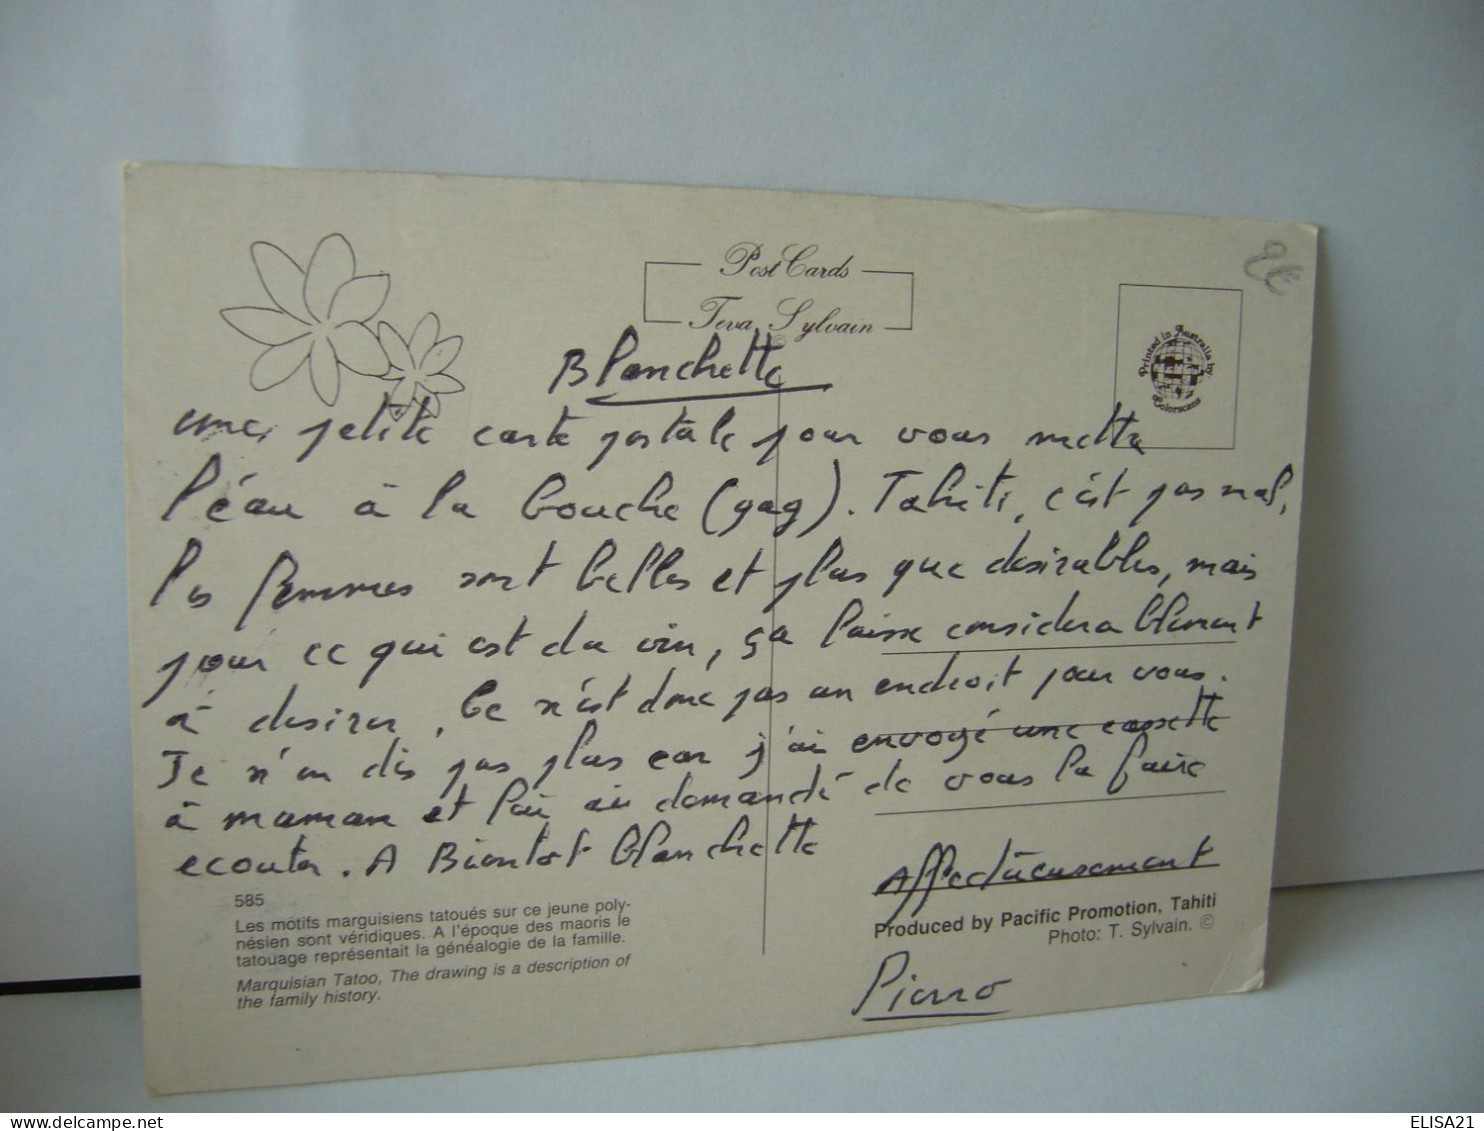 Post Cards
Teva Sylvain
©
2€
Printed in Australia by:
Colorscans
Blanchette
une petite carte postale pour vous mettre
l'eau à la bouche (gag). Tahiti, c'est pas mal,
les femmes sont belles et plus que desirables, mais
pour ce qui est du vin, ça laisse considerablement
à desirer. Ce n'est donc pas un endroit pour vous.
Je n'en dis pas plus car j'ai envoyé une cassette
à maman et lui ai demandé de vous la faire
ecouter. A Bientot Blanchette
Affectueusement
Pierro
585
Les motifs marguisiens tatoués sur ce jeune poly-
nésien sont véridiques. A l'époque des maoris le
tatouage représentait la généalogie de la famille.
Marquisian Tatoo, The drawing is a description of
the family history.
Produced by Pacific Promotion, Tahiti
Photo: T. Sylvain. ©
ELISA21